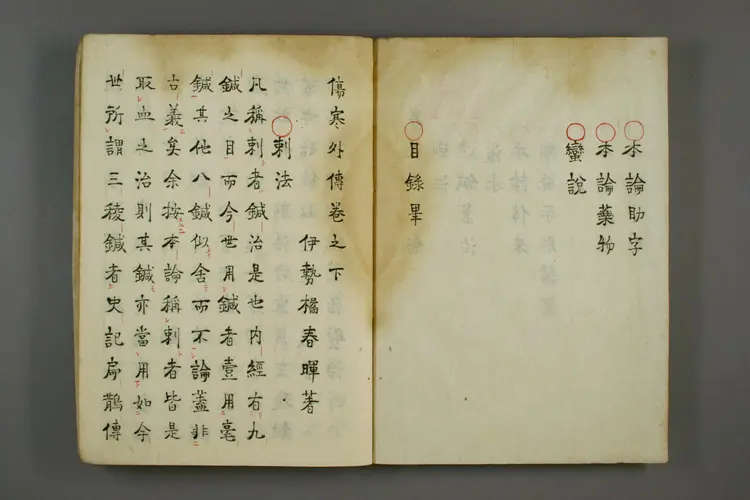 ○本論助字
○本論藥物
○蠻說
○目錄畢
傷寒外傳卷之下
伊勢橘春暉著
○刺法
凡稱刺者鍼治是也内經有九
鍼之目而今世用鍼者壹用毫
鍼其他八鍼似舍而不論蓋非
古義矣余按本論稱刺者皆是
取血之治則其鍼亦當用如今
世所謂三稜鍼者史記扁鵲傳